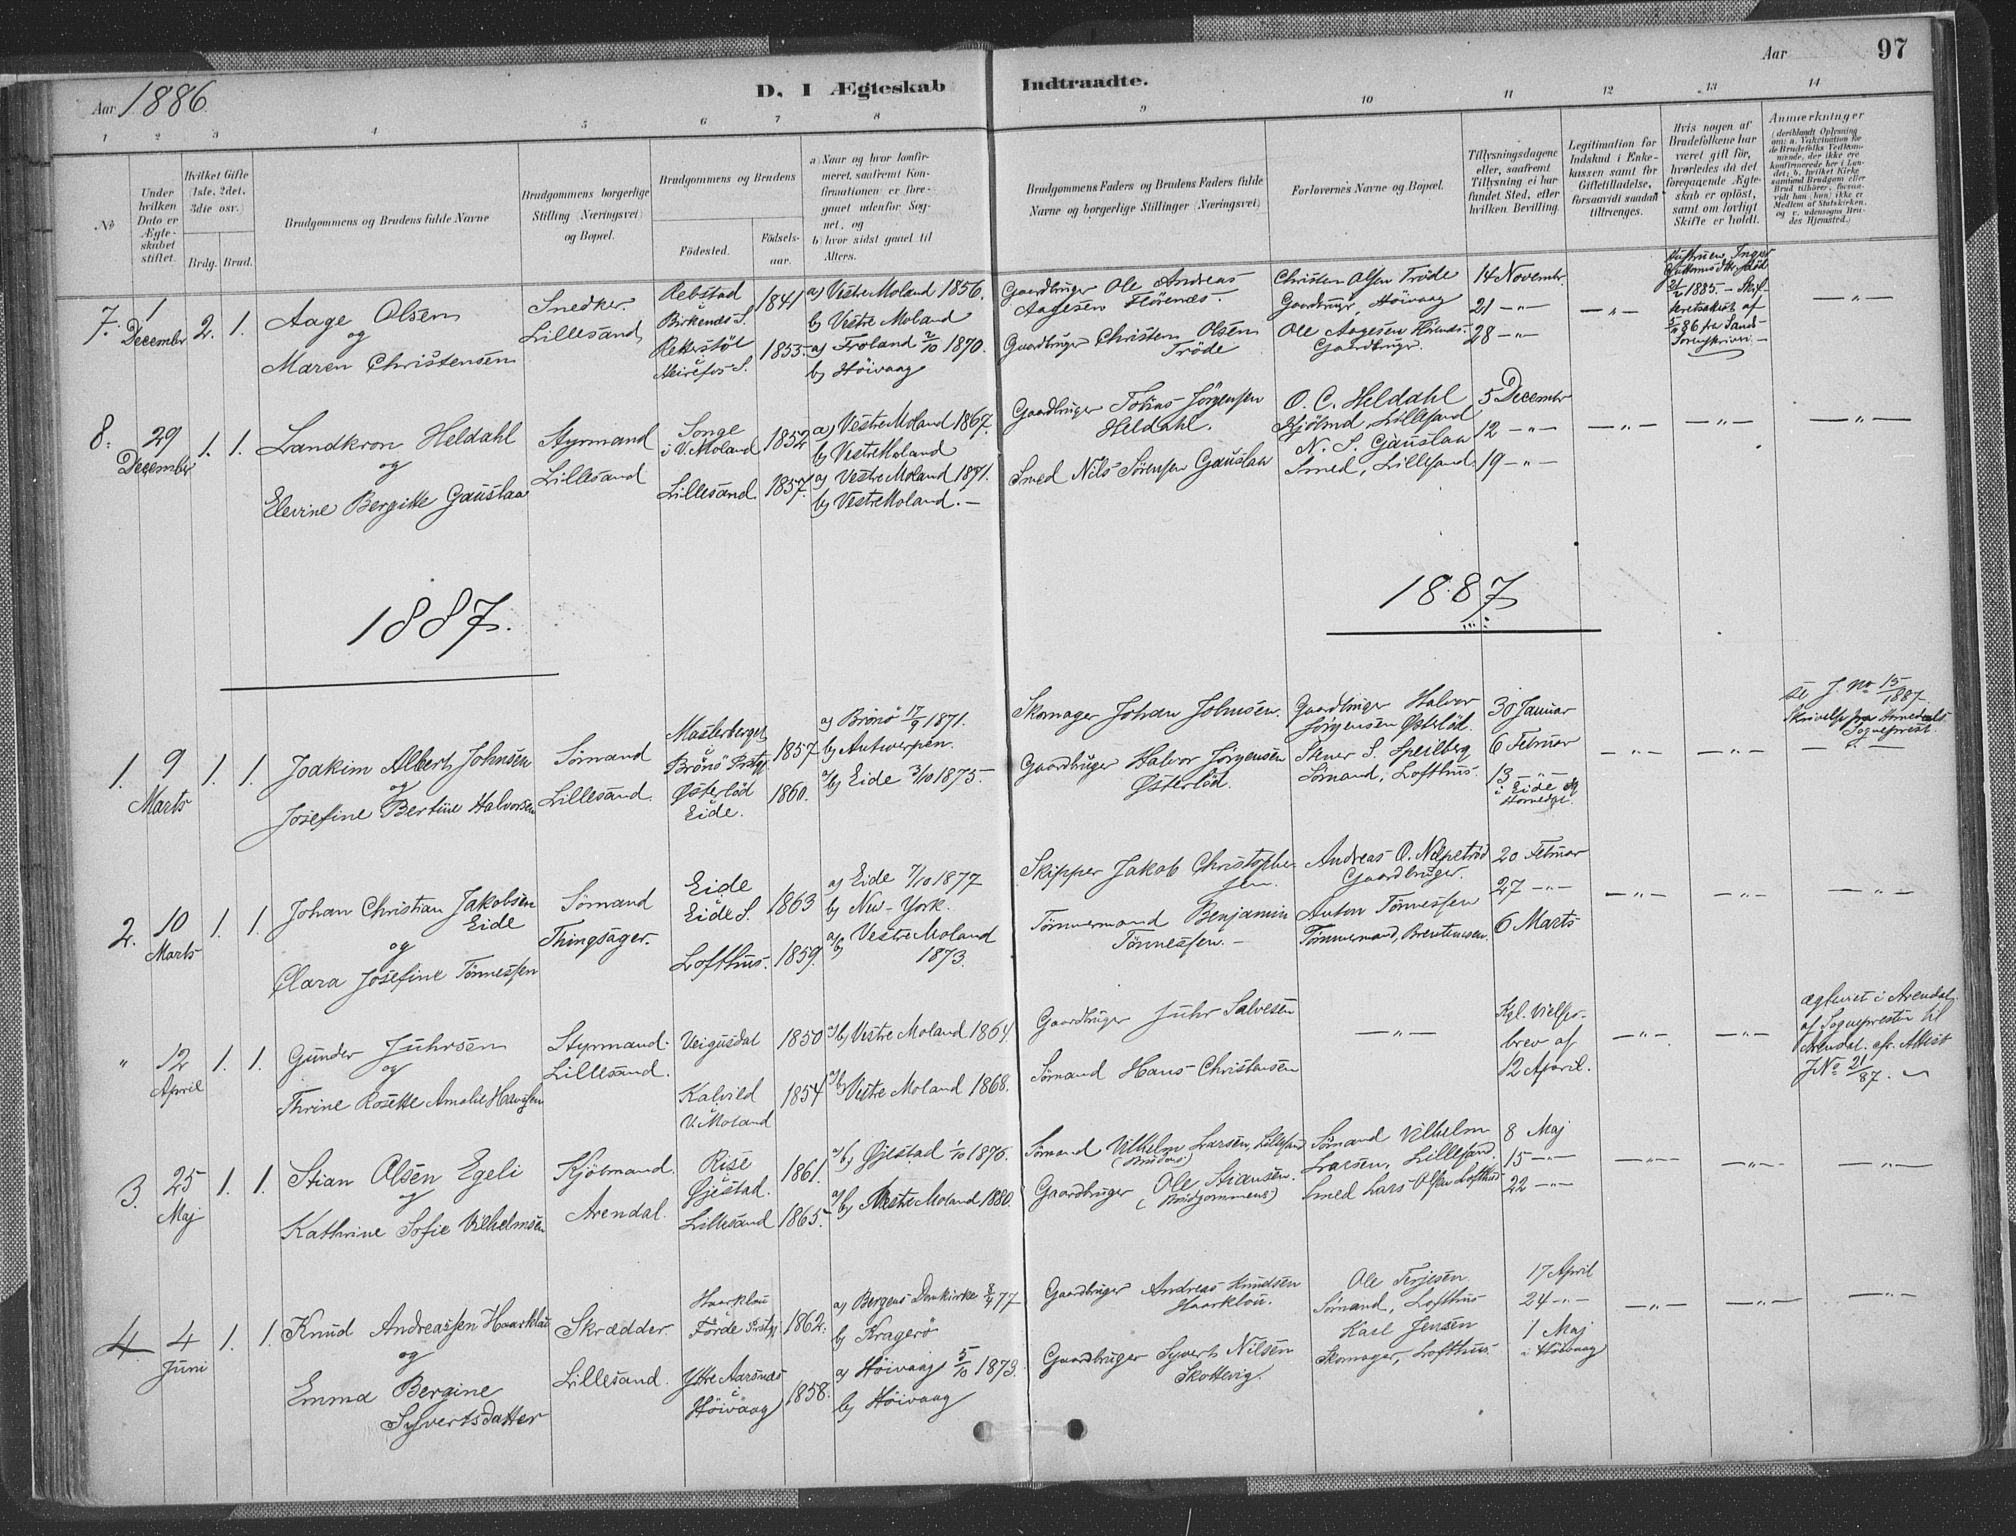 Aar 1886.
D. I Ægteskab Indtraadte.
Aar 97
1 2 3 4 5 6 7 8 9 10 11 12 13 14
No
Under hvilken Dato er Ægteskabet stiftet.
Hvilket Gifte (1ste, 2det, 3die osv.)
Brdg. Brud.
Brudgommens og Brudens fulde Navne
Brudgommens borgerlige Stilling (Næringsvei) og Bopæl.
Brudgommens og Brudens
Födested. Födsels-aar.
a) Naar og hvor konfirmeret, saafremt Konfirmationen er foregaaet udenfor Sognet, og
b) hvor sidst gaaet til Alters.
Brudgommens Faders og Brudens Faders fulde Navne og borgerlige Stillinger (Næringsvei)
Forlovernes Navne og Bopæl.
Tillysningsdagene eller, saafremt Tillysning ei har fundet Sted, efter hvilken Bevilling.
Legitimation for Indskud i Enkekassen samt for Giftetilladelse, forsaavidt saadan tiltrænges.
Hvis nogen af Brudefolkene har været gift för, hvorledes da det foregaaende Ægteskab er oplöst, samt om lovligt Skifte er holdt.
Anmærkninger
(deriblandt Oplysning om: a. Vakcination for de Brudefolks Vedkommende, der ikke ere konfirmerede her i Landet; b. hvilket Kirkesamfund Brudgom eller Brud tilhörer, forsaavidt han (hun) ikke er Medlem af Statskirken, og c. udensogns Brudes Hjemsted.)
7. 1 December 2. 1. Aage Olsen
og
Maren Christensen
Snedker.
Lillesand
Rebstad
Birkenæs S. 1841
1855.
a) Vestre Moland 1856.
b) Vestre Moland
a) Froland 2/10 1870.
b) Höivaag
Gaardbruger Ole Andreas
Aagesen Flörenæs.
Gaardbruger Christen Olsen
Tröde
Christen Olsen Tröde
Gaardbrugr, Höivaag
Ole Aagesen Flörenæs.
Gaardbrugr.
14 Novembr.
21 — " —
28 — " —
— " —
1885.
— " —
8. 29 December 1. 1. Landkron Heldahl
og
Elevine Bergitte Gauslaa
Styrmand
Lillesand
Songe
i V. Moland 1852
Lillesand. 1857.
a) Vestre Moland 1867.
b) Vestre Moland
a) Vestre Moland 1871.
b) Vestre Moland. —
Gaardbruger Tobias Jörgensen
Heldahl.
Smed Nils Sörensen Gauslaa
O. C. Heldahl
Lillesand
N. S. Gauslaa
Smed, Lillesand.
5 Decembr
12 — " —
19 — " —
— " — — " — — " —
1887. 1887
1. 9 Marts 1. 1. Joakim Albert Johnsen
og
Josefine Bertine Halvorsen
Sömand
Lillesand.
Brönö Prstgj. 1857
Österlöd
Eide. 1860.
a) Brönö 17/9 1871.
b) Antwerpen.
a/b) Eide 3/10 1875. —
Skomager Johan Johnsen.
Gaardbruger Halvor Jörgensen
Österlöd.
Gaardbruger Halvor
Jörgensen Österlöd.
Stener S. Speilberg
Sömand, Lofthus.
30 Januar
6 Februar
13 — " —
i Eide
— " — — " —
J. No 15/1887
Skrivelse fra Homedals
Sogneprest.
2. 10 Marts 1. 1. Johan Christian Jakobsen
Eide
og
Clara Josefine Tönnessen
Sömand
Thingsager.
Eide
Eide S. 1863
Lofthus. 1859.
a) Eide 7/10 1877
b) New-York.
a/b) Vestre Moland
1873.
Skipper Jakob Christopher-
sen.
Tömmermand Benjamin
Tönnessen. —
Andreas O.
Gaardbruger.
Anton Tönnessen
Tömmermand,
20 Februar
27 — " —
6 Marts
— " — — " — — " —
" 12 April 1. 1. Gunder Juhrsen
og
Thrine Rosette Amalie Hansen
Styrmand.
Lillesand.
Veigusdal 1850
Kalvild
V. Moland 1854
a/b) Vestre Moland 1864.
a/b) Vestre Moland 1868.
Gaardbruger Juhr Salvesen
Sömand Hans Christensen
— " —
Kgl. Vielses-
brev af
12 April.
— " — — " —
ægteviet i Arendal
af Sognepresten til
Arendal. cfr. Attest
J No 21/87.
3. 25 Maj 1. 1. Stian Olsen Egeli
og
Kathrine Sofie Vilhelmsen
Kjöbmand.
Arendal.
Rise
Öjestad. 1861.
Lillesand 1865.
a/b) Öjestad 1/10 1876.
a/b) Vestre Moland 1880.
Sömand Vilhelm Larsen, Lillesand
(Brudens)
Gaardbruger Ole Stiansen.
(Brudgommens)
Sömand Vilhelm
Larsen, Lillesand.
Smed Lars Olsen Lofthus
8 Maj
15 — " —
22 — " —
— " — — " — — " —
4. 4 Juni 1. 1. Knud Andreassen Haarklau
og
Emma Bergine
Syvertsdatter
Skrædder.
Lillesand.
Haarklau
Förde Prstgj. 1862.
Ytre Aarsnæs
i
Höivaag 1858.
a) Bergens Domkirke 8/4 77
b) Kragerö
a) Höivaag 5/10 1873.
b) Höivaag
Gaardbruger Andreas Knudsen
Haarklou.
Gaardbruger Syvert Nilsen
Skottevig.
Ole Terjesen.
Sömand, Lofthus
Karl Jensen
Skomager, Lofthus.
17 April
24 — " —
1 Maj
i Höivaag
— " — — " — — " —